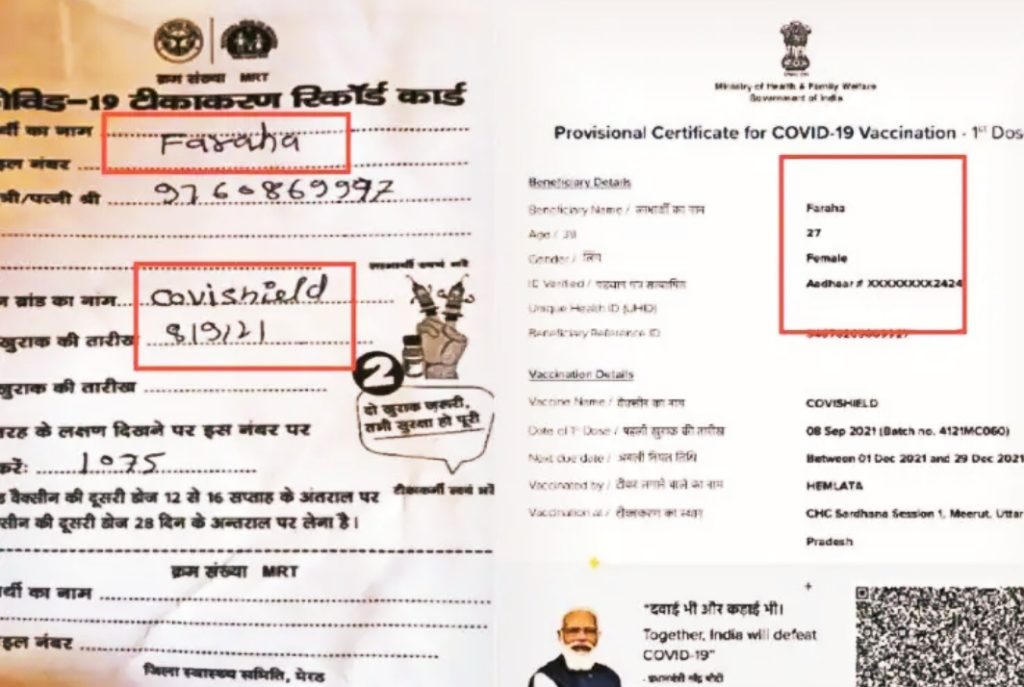 क्रम संख्या MRT
ोविड-19 टीकाकरण रिकॉर्ड कार्ड
र्थी का नाम Faraha
इल नंबर
त्री/पत्नी श्री 9760869997
लाभार्थी स्वयं भरें
न ब्रांड का नाम covishield
खुराक की तारीख 8/9/21
खुराक की तारीख
2
दो खुराक ज़रूरी,
तभी सुरक्षा हो पूरी
तरह के लक्षण दिखने पर इस नंबर पर
करें: 1075
वैक्सीन की दूसरी डोज 12 से 16 सप्ताह के अंतराल पर
टीकाकर्मी स्वयं भरें
सीन की दूसरी डोज 28 दिन के अन्तराल पर लेना है।
क्रम संख्या MRT
र्थी का नाम
इल नंबर
जिला स्वास्थ्य समिति, मेरठ
Ministry of Health & Family Welfare
Government of India
Provisional Certificate for COVID-19 Vaccination - 1st Dos
Beneficiary Details
Beneficiary Name / लाभार्थी का नाम Faraha
Age / उम्र 27
Gender / लिंग Female
ID Verified / पहचान पत्र सत्यापित Aadhaar # XXXXXXXX2424
Unique Health ID (UHID)
Beneficiary Reference ID
Vaccination Details
Vaccine Name / वैक्सीन का नाम COVISHIELD
Date of 1st Dose / पहली खुराक की तारीख 08 Sep 2021 (Batch no. 4121MC060)
Next due date / अगली नियत तिथि Between 01 Dec 2021 and 29 Dec 2021
Vaccinated by / टीका लगाने वाले का नाम HEMLATA
Vaccination at / टीकाकरण का स्थान CHC Sardhana Session 1, Meerut, Uttar
Pradesh
"दवाई भी और कड़ाई भी।
Together, India will defeat
COVID-19"
- प्रधानमंत्री नरेंद्र मोदी